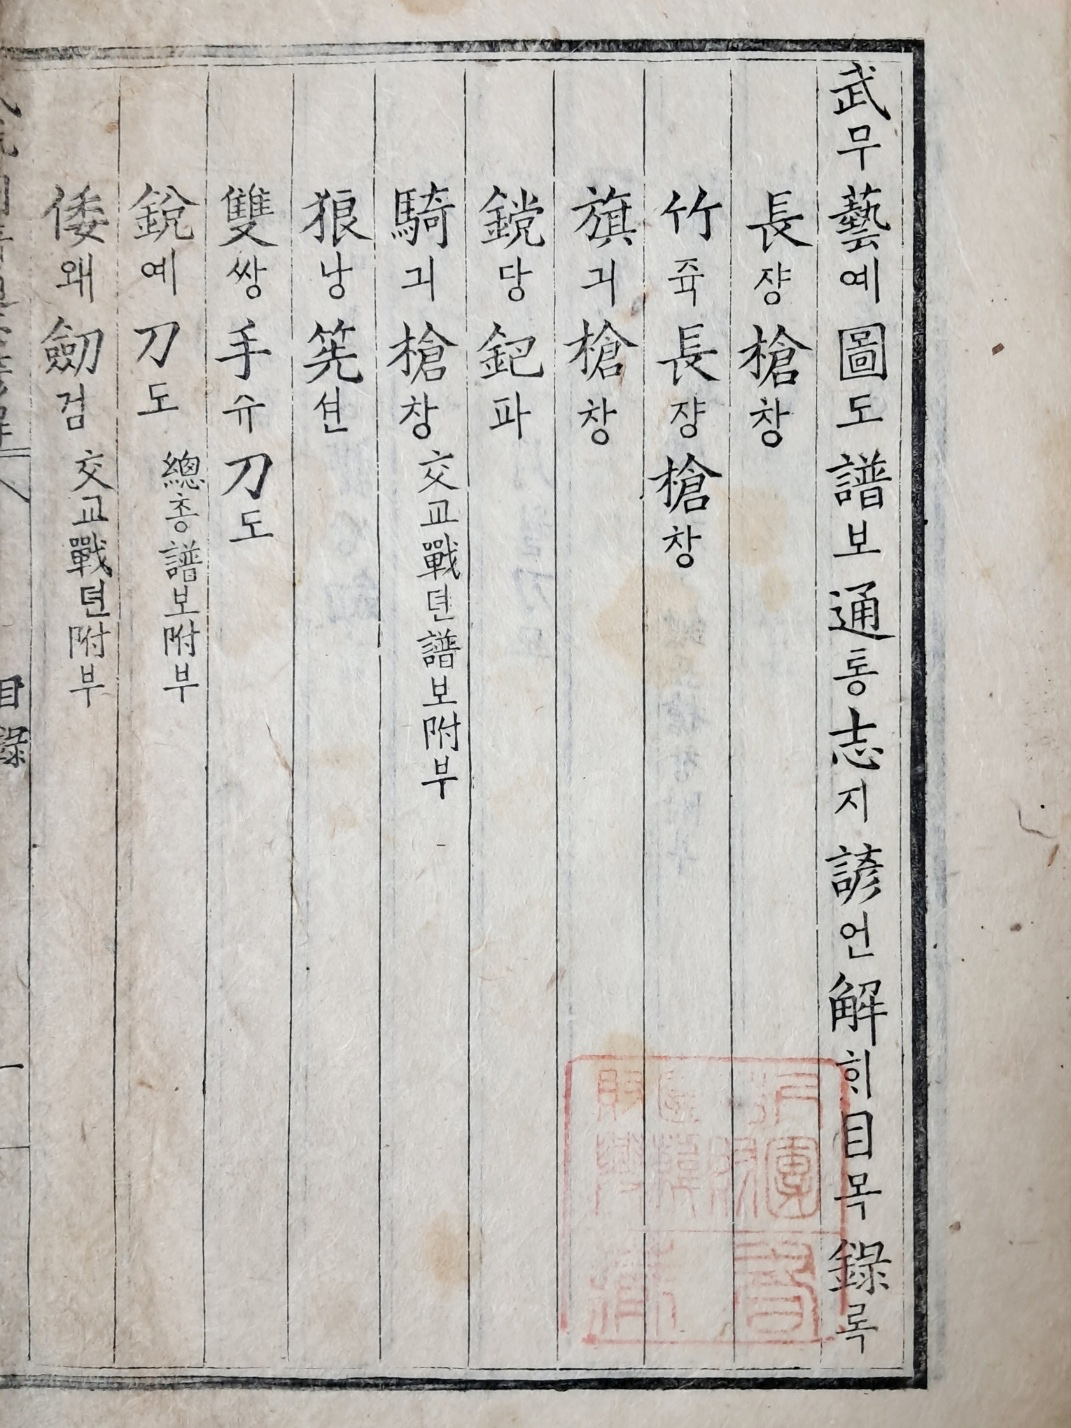 武무藝예圖도譜보通통志지諺언解ᄒᆡ目목錄록
長쟝槍창
竹쥭長쟝槍창
旗긔槍창
钂당鈀파
騎긔槍창 交교戰뎐譜보附부
狼낭筅션
雙쌍手슈刀도
銳예刀도 總총譜보附부
倭왜劒검 交교戰뎐附부
目錄 一